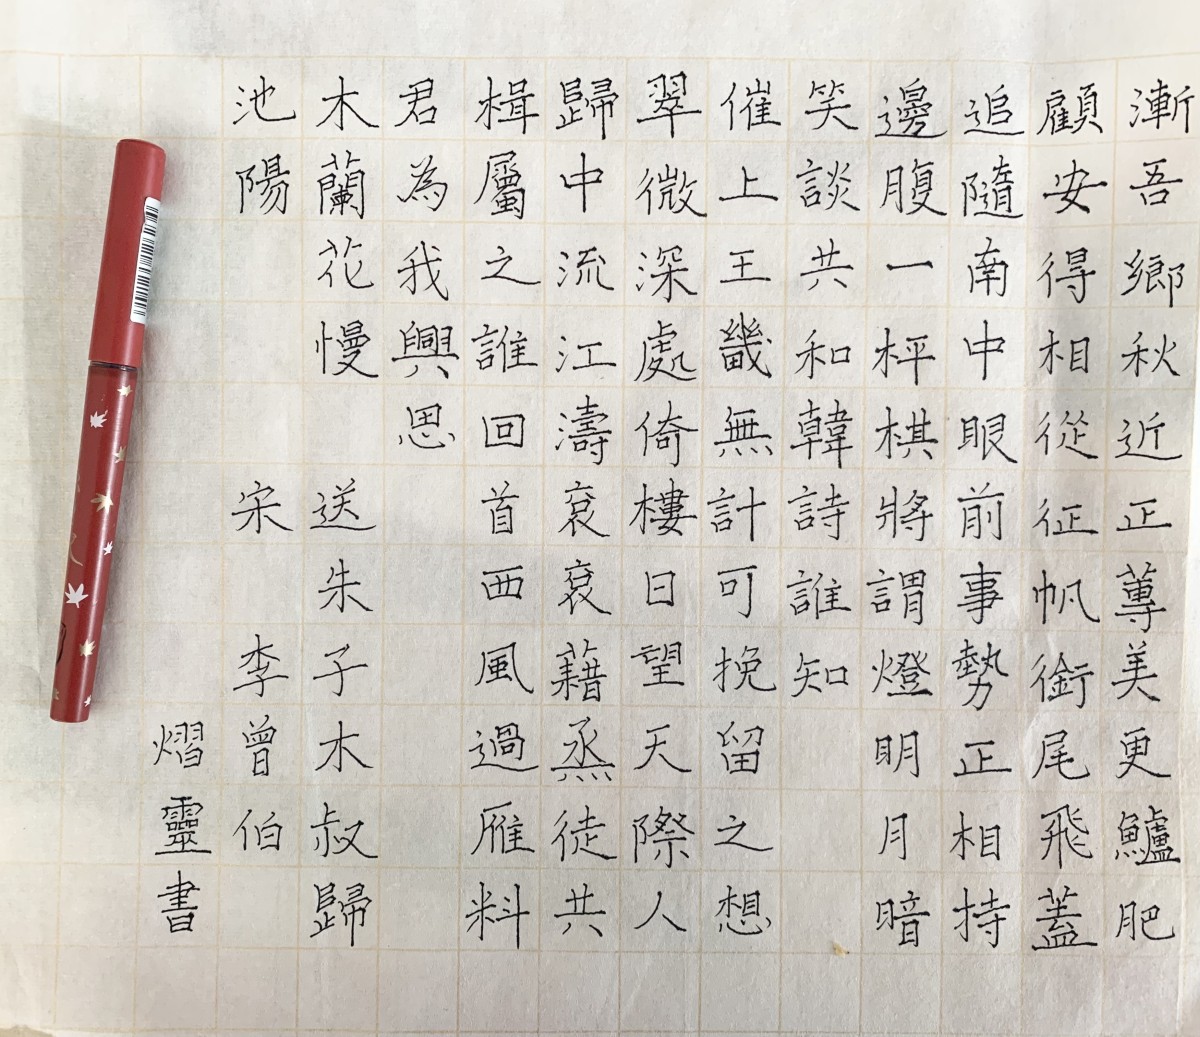 漸吾鄉秋近正蓴美更鱸肥
顧安得相從征帆銜尾飛蓋
追隨南中眼前事勢正相持
邊腹一枰棋將謂燈明月暗
笑談共和韓詩誰知
催上王畿無計可挽留之想
翠微深處倚樓日望天際人
歸中流江濤袞袞藉烝徒共
楫屬之誰回首西風過雁料
君為我興思
木蘭花慢 送朱子木叔歸
池陽 宋 李曾伯
熠靈書